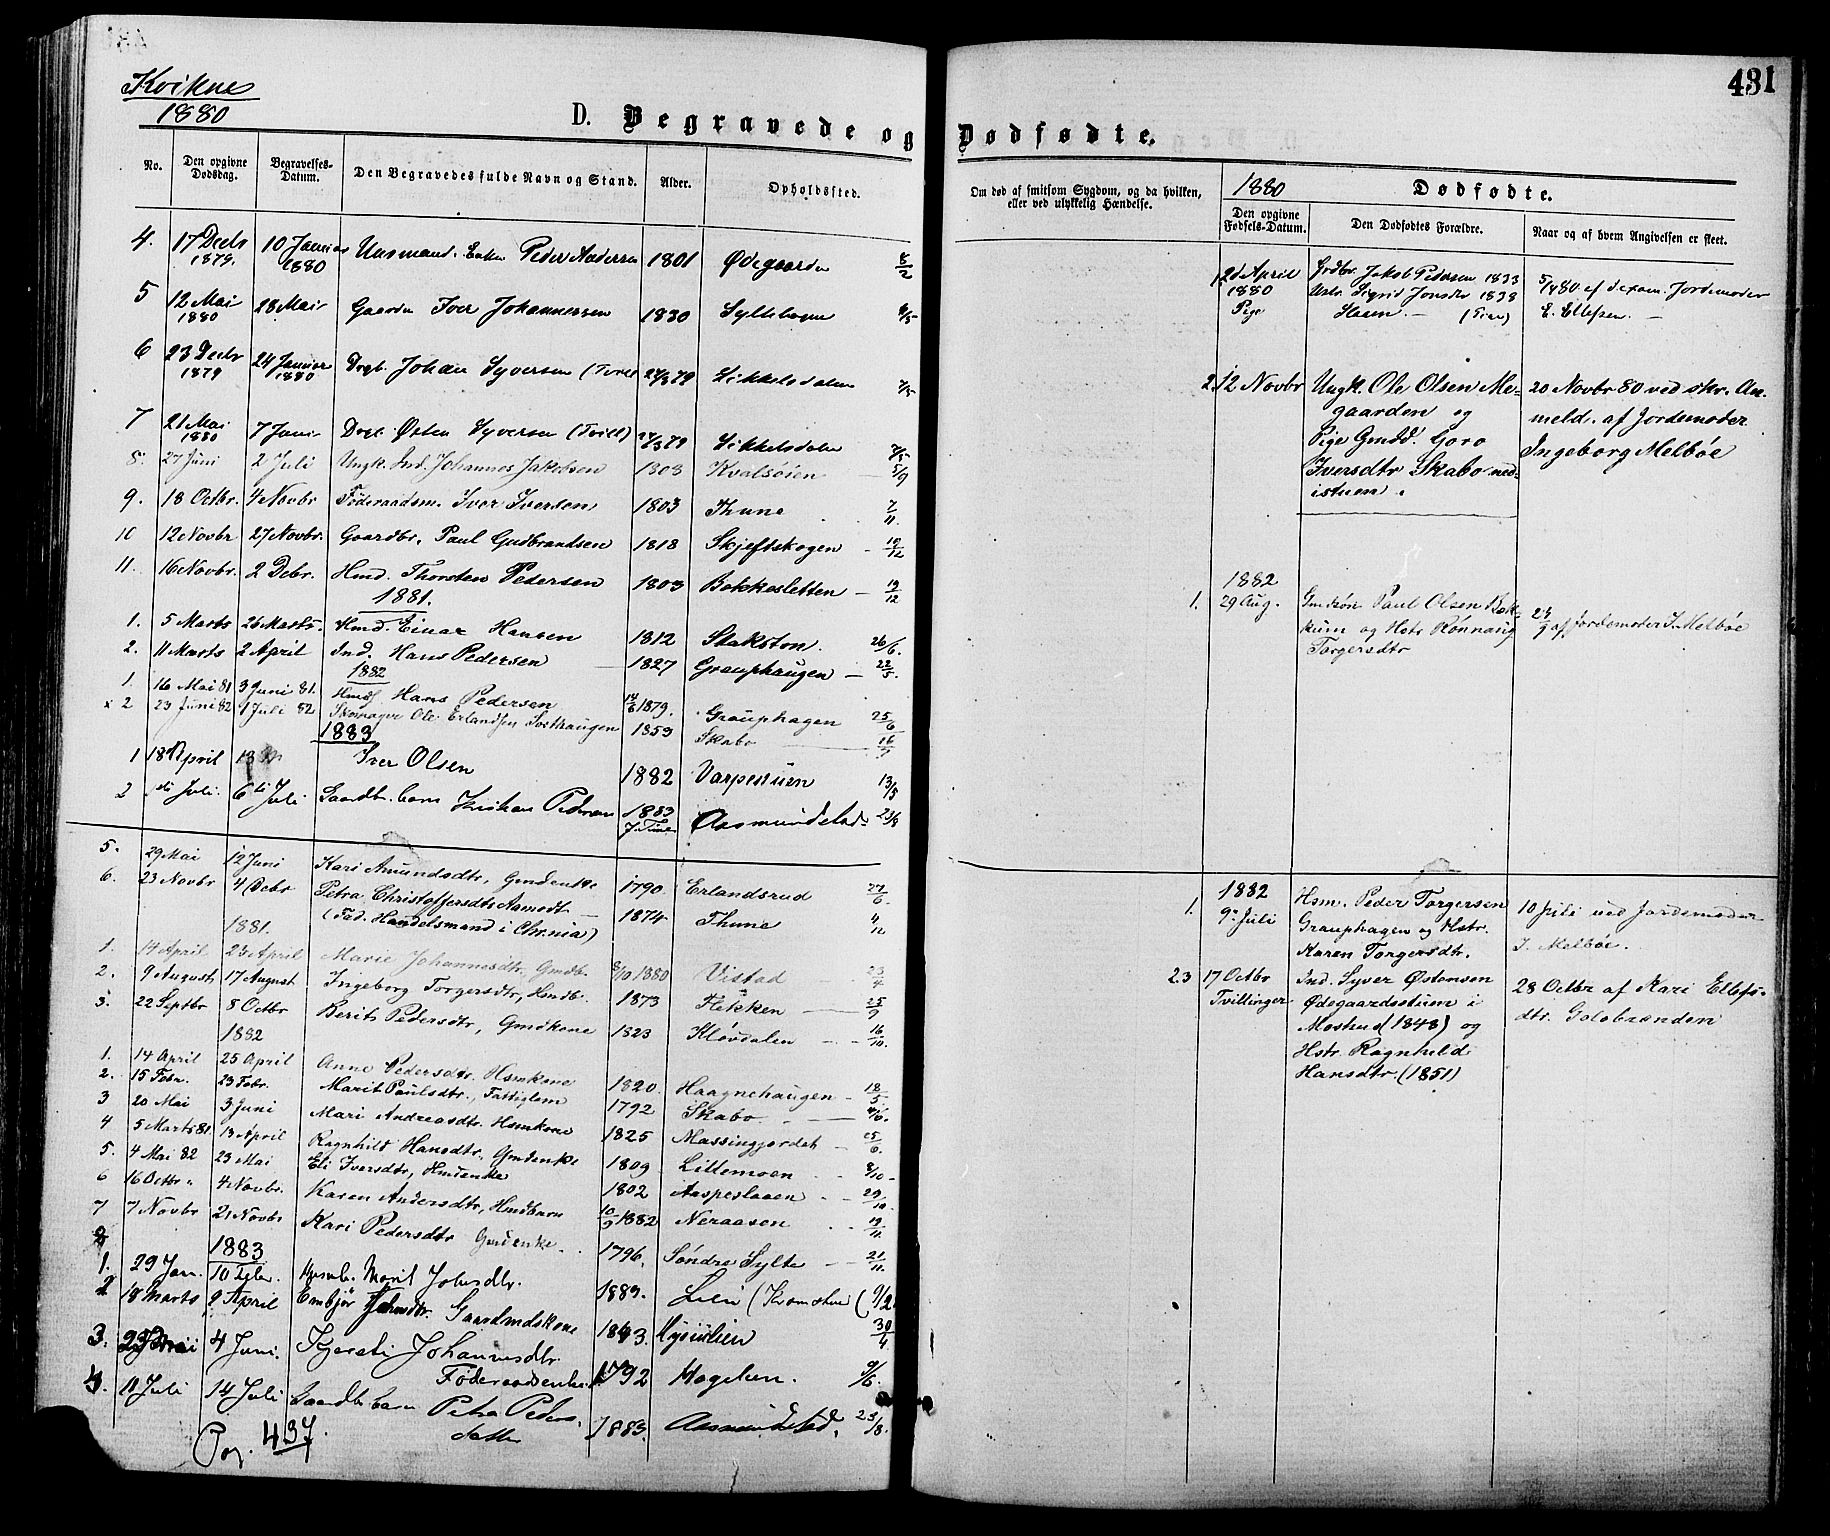 Kvikne
1880
D. Begravede og
No. Den opgivne Dødsdag. Begravelses-Datum. Den Begravedes fulde Navn og Stand. Alder. Opholdssted.
4. 17 Decbr 1879. 10 Januar 1880 Peder Andersen 1801 Ødegaarden 8/2
5 12 Mai 1880 28 Mai Iver Johannessen 1830 Syltebogen
6 23 Decbr 1879 24 Januar 1880 Johan Syversen (Tvill) 27/3 79 Sikkelsdalen
7 21 Mai 1880 7 Juni Østen Syversen (Tvill) 27/3 79 Sikkelsdalen
8. 27 Juni 2 Juli Ungk. Ind. Johannes Jakobsen 1803 Kvalsøien 5/9
9. 18 Octbr. 4 Novbr Føderaadsm. Iver Iversen 1803 Thune 7/11
10 12 Novbr 27 Novbr. Gaardbr. Paul Gudbrandsen 1818 Skjeftskogen 19/12
11. 16 Novbr. 2 Debr. Hmd. Thorsten Pedersen 1803 Bakkesletten 19/12
1881.
1. 5 Marts 26 Marts. Hmd. Einar Hansen 1812 Stakston. 26/6.
2. 11 Marts 2 April Ind. Hans Pedersen 1827 Grauphaugen 22/5.
1882
1. 16 Mai 81 3 Juni 81. Hans Pedersen 14/6 1879. Grauphagen 25/6
x 2 23 Juni 82 1 Juli 82 Skomager Ole Erlandsen Sorthaugen 1853 Skabo 16/7
1883
1 18 April Iver Olsen 1882 Varpestuen 13/5
2 Juli. 6ti Juli Gaardbr. barn Kristian Pedersen 1883 7 Timer Aasmundstad 23/8
5. 29 Mai 12 Juni Kari Amundsdtr, Gmdenke 1790 Erlandsrud 27/6
6. 23 Novbr 4 Debr Petra Christoffersdtr Aamodt 1874 Thune 4/12
(Fad. Handelsmand i Chr.nia)
1881.
1. 14 April 23 April Marie Johannesdtr, Gmdb. 8/10 1880 Vistad 23/4
2. 9 August 17 August Ingeborg Torgersdtr, Hmdb. 1873 Flekken 25/9
3. 22 Septbr 8 Octbr Berit Pedersdtr, Gmdkone 1823 Kløvdalen 16/10.
1882
1. 14 April 25 April Anne Pedersdtr. Hsmkone 1820. Haagnehaugen 18/5
2. 15 Febr. 23 Febr. Marit Paulsdtr., Fattiglem 1792 Skabo 4/6.
3 20 Mai 3 Juni Mari Andreasdtr. Hsmkone 1825 Massingjordet 25/6.
4 5 Marts 81. 13 April Ragnhild Hansdtr, Gmdenke 1809 Lillemoen 8/10
5. 4 Mai 82 23 Mai Eli Iversdtr, Hmdenke 1802 Aaspeslaaen 29/10
6 16 Octbr " 4 Novbr. Karen Andersdtr, Hmdbarn 10/9 1882 Neraasen 19/11
7 7 Novbr 21 Novbr Kari Pedersdtr Gmdenke. 1796. Søndre Sylte 21/11.
1883
1. 29 Jan. 10 Febr. Marit Johsdtr. 1889. Lien (Kromstue) 9/2
2 18 Marts 9 April Embjør Johnsdtr. Gaardmdskone 1843. 30/4
3. 4 Juni. Kjersti Johannesdtr. Føderaadsenke 1792 Hageken. 9/6
4. 11 Juli 14 Juli Gaardbr. barn Petra Peders- 1883. Aasmundstad. 23/8.
datter
Pag. 437.
431
Dødfødte.
Om død af smitsom Sygdom, og da hvilken, eller ved ulykkelig Hændelse.
1880 Dødfødte.
Den opgivne Fødsels-Datum. Den Dødfødtes Forældre. Naar og af hvem Angivelsen er skeet.
1. 2d April Grdbr. Jakob Pedersen 1833 5/4 80. af d. exam. Jordemoder
1880 Sigrid Jonsdtr 1838 E. Ellefsen.
Pige
2. 12 Novbr Ungk. Ole Olsen Me- 20 Novbr 80 ved skr. An-
gaarden og meld. af Jordemoder
Pige Gmdd. Goro Ingeborg Melbøe
Iversdtr Skabo ned-
istuen.
1882
1. 29 Aug. Gmdsøn Paul Olsen Bak- 2/9 af Jordemoder I. Melbøe
kum og Hstr Rønnaug
Torgersdtr
1882
1. 9. Juli Hsm. Peder Torgersen 10 Juli ved Jordemoder
Grauphagen og Hstr. I. Melbøe.
Karen Torgersdtr.
2.3 17 Octbr Ind. Syver Østensen 28 Octbr af Kari Ellefs-
Tvillinger Ødegaardsstuen i dtr. Golobrenden
Mosrud (1848) og
Hstr. Ragnhild
Hansdtr. (1851)